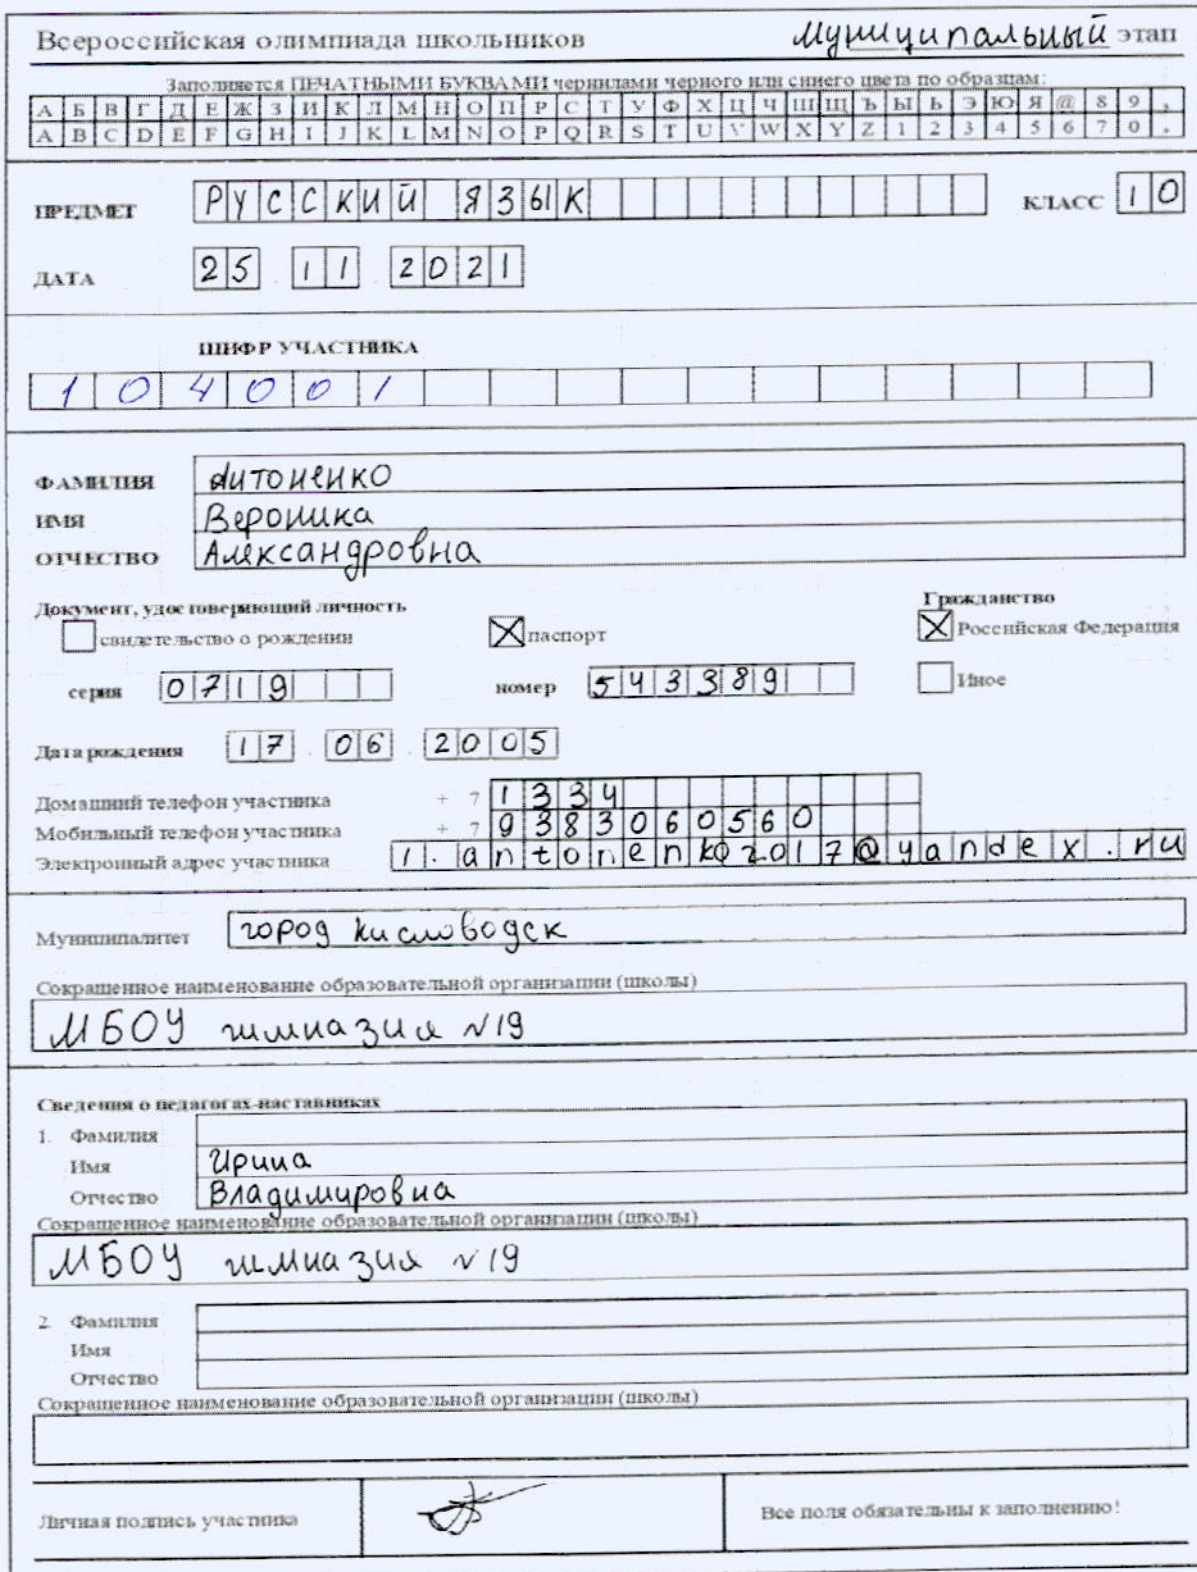 Всероссийская олимпиада школьников Муниципальный этап
Заполняется ПЕЧАТНЫМИ БУКВАМИ чернилами черного или синего цвета по образцам:
А Б В Г Д Е Ж З И К Л М Н О П Р С Т У Ф Х Ц Ч Ш Щ Ъ Ы Ь Э Ю Я @ 8 9 ,
A B C D E F G H I J K L M N O P Q R S T U V W X Y Z 1 2 3 4 5 6 7 0 .
ПРЕДМЕТ РУССКИЙ ЯЗЫК КЛАСС 10
ДАТА 25 . 11 . 2021
ШИФР УЧАСТНИКА
104001
ФАМИЛИЯ Антоненко
ИМЯ Вероника
ОТЧЕСТВО Александровна
Документ, удостоверяющий личность Гражданство
свидетельство о рождении паспорт Российская Федерация
серия 0719 номер 543389 Иное
Дата рождения 17 . 06 . 2005
Домашний телефон участника + 7 1334
Мобильный телефон участника + 7 9383060560
Электронный адрес участника 1.antonenko2017@yandex.ru
Муниципалитет город Кисловодск
Сокращенное наименование образовательной организации (школы)
МБОУ гимназия №19
Сведения о педагогах-наставниках
1. Фамилия
Имя Ирина
Отчество Владимировна
Сокращенное наименование образовательной организации (школы)
МБОУ гимназия №19
2. Фамилия
Имя
Отчество
Сокращенное наименование образовательной организации (школы)
Личная подпись участника Все поля обязательны к заполнению!